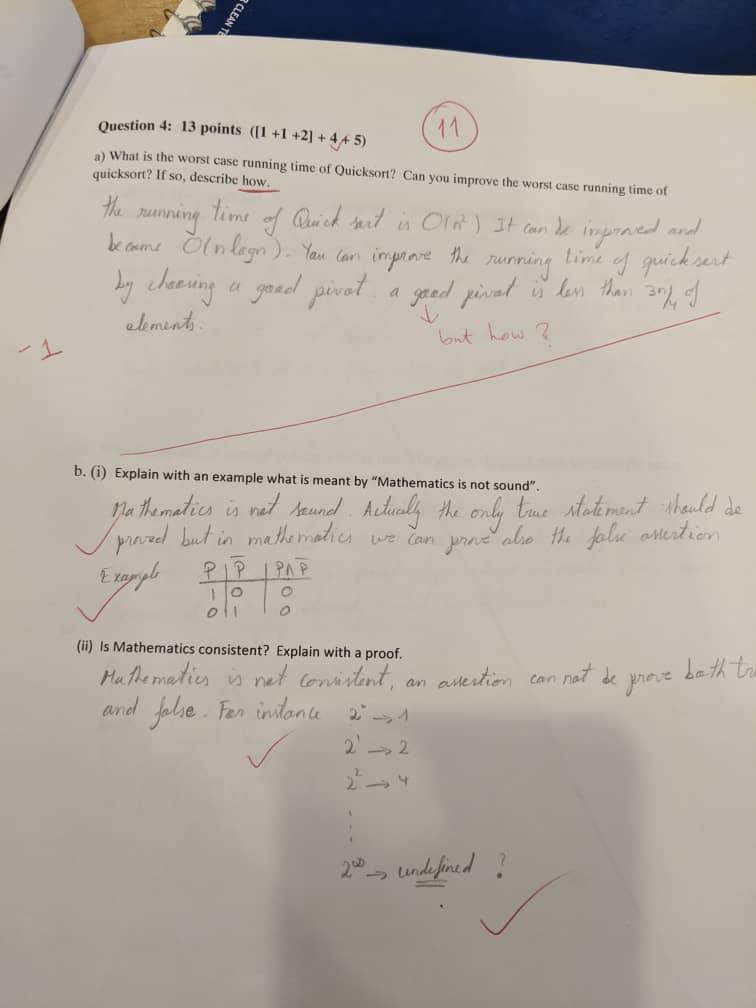 CLEAN
11
Question 4: 13 points ([1 +1 +2] + 4 + 5)
a) What is the worst case running time of Quicksort? Can you improve the worst case running time of
quicksort? If so, describe how.
the running time of Quick sort is O(n²) It can be improved and
became O(n logn). You can improve the running time of quick sort
by choosing a good pivot. a good pivot is less than 3n/4 of
elements.
but how ?
-1
b. (i) Explain with an example what is meant by “Mathematics is not sound”.
Mathematics is not sound. Actually the only true statement should be
proved but in mathematics we can prove also the false assertion
Example P P̅ P∧P̅
1 0 0
0 1 0
(ii) Is Mathematics consistent? Explain with a proof.
Mathematics is not consistent, an assertion can not be prove both
and false. For instance 2⁰ → 1
2¹ → 2
2² → 4
2^∞ → undefined ?